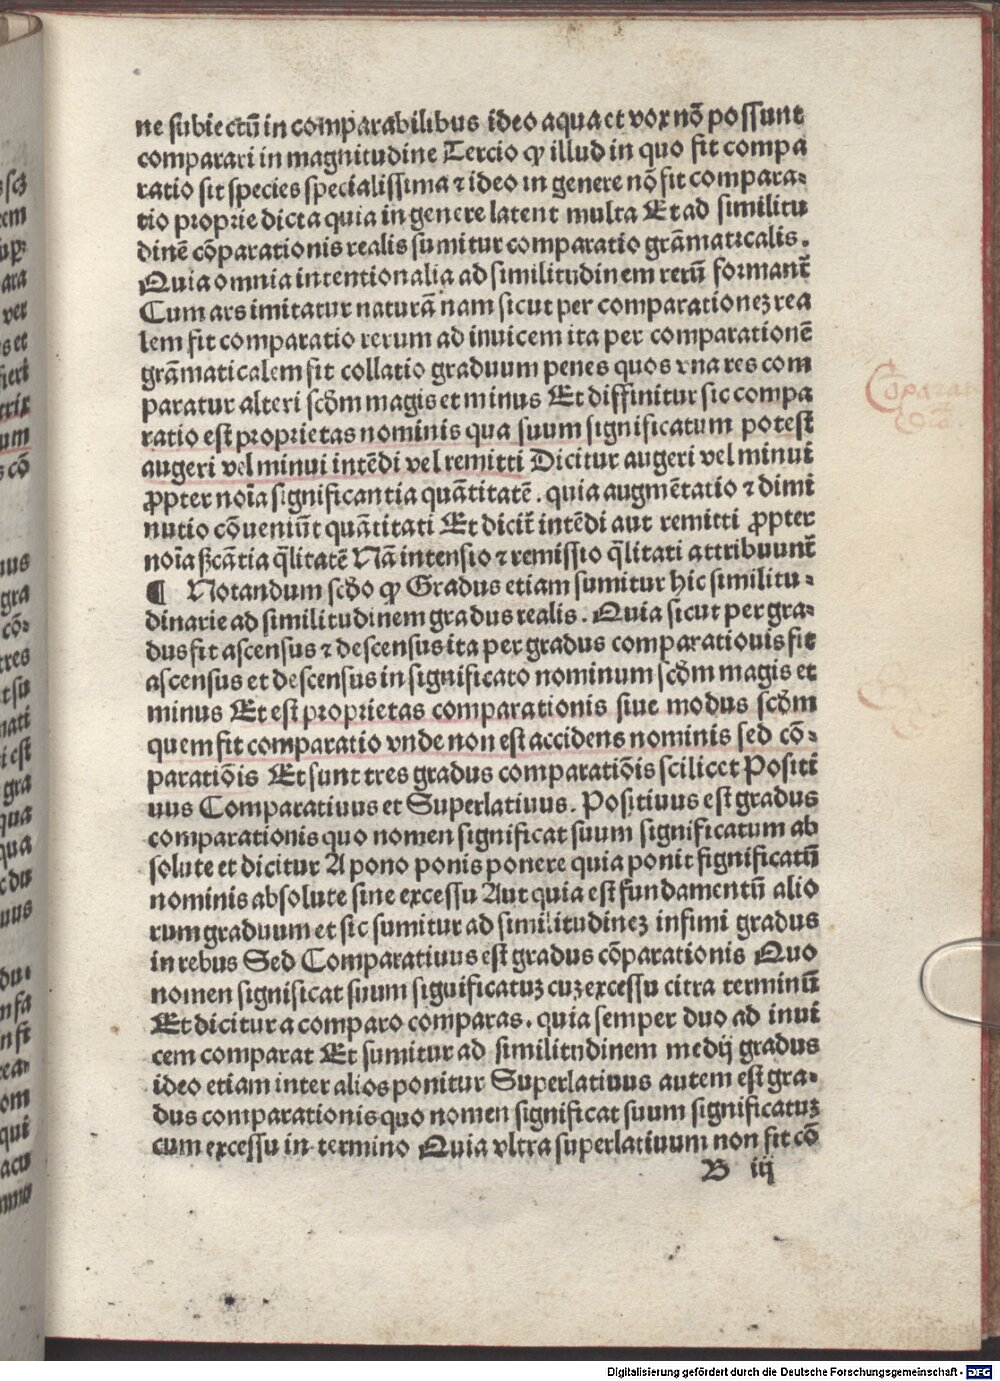 ne subiectū in comparabilibus ideo aqua et vox nō possunt
comparari in magnitudine Tercio ꝙ illud in quo fit compa
ratio sit species specialissima ⁊ ideo in genere nō fit compara-
tio proprie dicta quia in genere latent multa Et ad similitu
dinē cōparationis realis sumitur comparatio grāmaticalis.
Quia omnia intentionalia ad similitudinem rerū formant̄
Cum ars imitatur naturā nam sicut per comparationeꝫ rea
lem fit comparatio rerum ad inuicem ita per comparationē
grāmaticalem fit collatio graduum penes quos vna res com
paratur alteri scd̄m magis et minus Et diffinitur sic compa
ratio est proprietas nominis qua suum significatum potest
augeri vel minui intēdi vel remitti Dicitur augeri vel minui
ꝓpter noīa significantia quātitatē. quia augmētatio ⁊ dimi
nutio cōueniūt quātitati Et dicit̄ intēdi aut remitti ꝓpter
noīa ſcātia q̄litatē Nā intensio ⁊ remissio q̄litati attribuunt̄
¶ Notandum scd̄o ꝙ Gradus etiam sumitur hic similitu-
dinarie ad similitudinem gradus realis. Quia sicut per gra-
dus fit ascensus ⁊ descensus ita per gradus comparatiouis fit
ascensus et descensus in significato nominum scd̄m magis et
minus Et est proprietas comparationis siue modus scd̄m
quem fit comparatio vnde non est accidens nominis sed cō-
paratiōis Et sunt tres gradus comparatiōis scilicet Positi
uus Comparatiuus et Superlatiuus. Positiuus est gradus
comparationis quo nomen significat suum significatum ab
solute et dicitur A pono ponis ponere quia ponit significatū
nominis absolute sine excessu Aut quia est fundamentū alio
rum graduum et sic sumitur ad similitudineꝫ infimi gradus
in rebus Sed Comparatiuus est gradus cōparationis Quo
nomen significat suum siguificatuꝫ cuꝫ excessu citra terminū
Et dicitur a comparo comparas. quia semper duo ad inui
cem comparat Et sumitur ad similitudinem medij gradus
ideo etiam inter alios ponitur Superlatiuus autem est gra-
dus comparationis quo nomen significat suum significatuꝫ
cum excessu in termino Quia vltra superlatiuum non fit cō
B iij
Digitalisierung gefördert durch die Deutsche Forschungsgemeinschaft - DFG